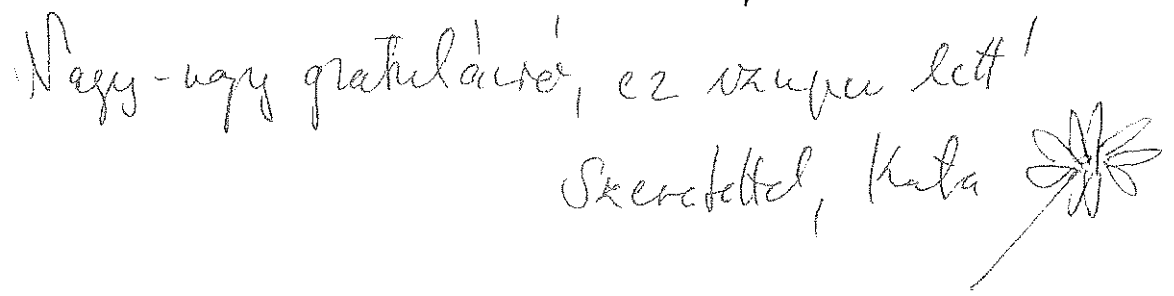 Nagy-nagy gratuláció, ez szuper lett!
Szeretettel, Kata